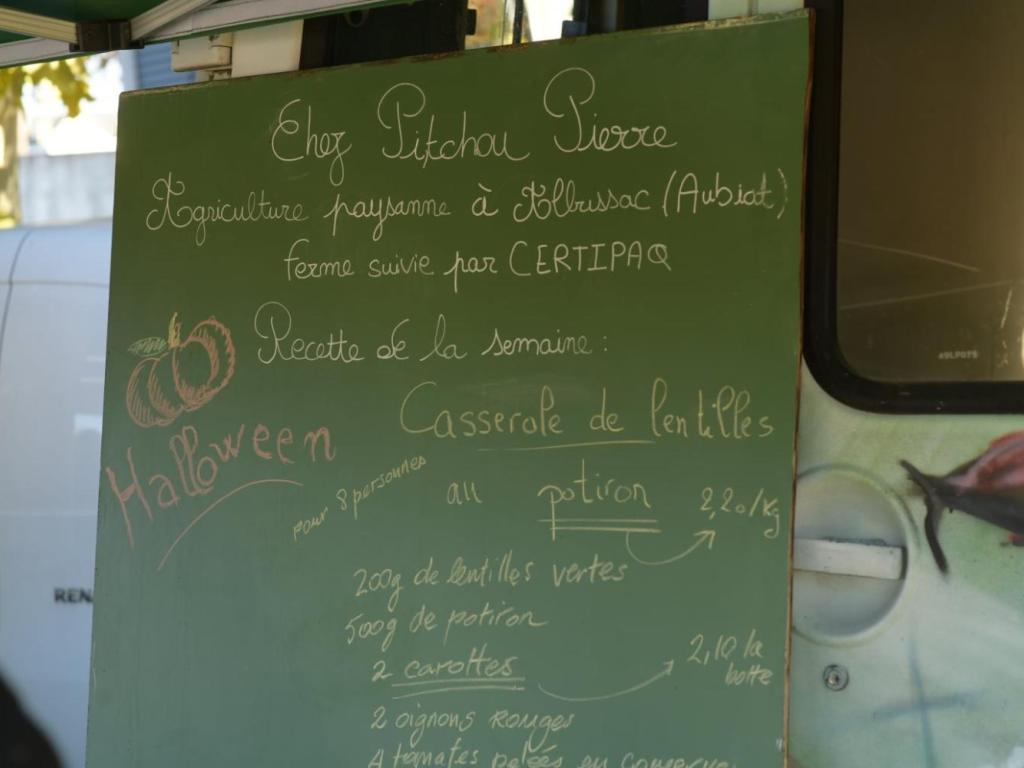 Chez Pitchou Pierre
Agriculture paysanne à Albussac (Aubiat)
ferme suivie par CERTIPAQ
Recette de la semaine :
Casserole de lentilles
au potiron
2,20/Kg
Halloween
pour 8 personnes
200g de lentilles vertes
500g de potiron
2 carottes
2,10 la
botte
2 oignons rouges
4 tomates pelées en conserve
REN